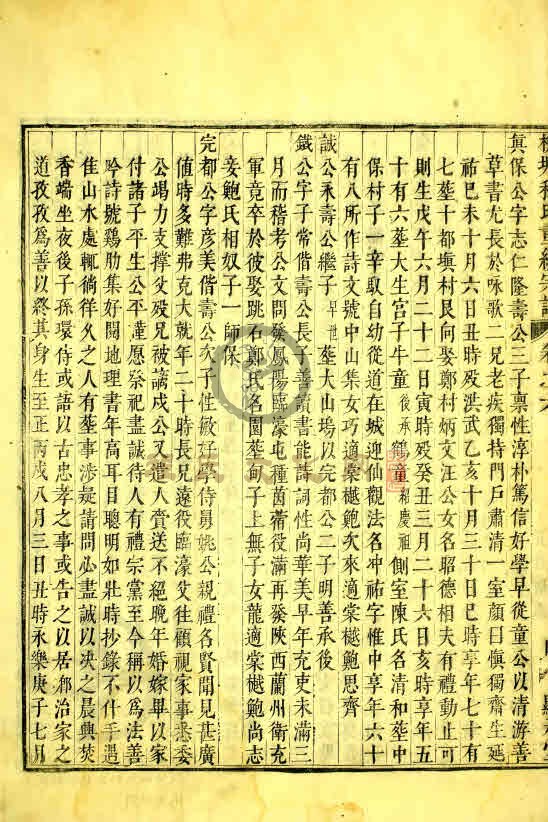 真保公字志仁隆壽公三子禀性淳朴篤信好學早從童公以清游善
草書尤長於咏歌二兄老疾獨持門戶肅清一室顔曰慎獨齋生延
祐己未十月六日丑時殁洪武乙亥十月三十日巳時享年七十有
七塟十都塡村艮向娶鄭村炳文汪公女名昭德相夫有禮動止可
則生戊午六月二十二日寅時殁癸丑三月二十六日亥時享年五
十有六塟大生宫子牛童後承鶴童紹慶祖側室陳氏名清和塟中
保村子一辛取自幼從道在城迎仙觀法名冲祐字惟中享年六十
有八所作詩文號中山集女巧適棠樾鮑次來適棠樾鮑思齊
誠公承壽公繼子早世塟大山塢以完都公二子明善承後
鐵公字子常偕壽公長子善讀書能詩詞性尚華美早年充吏未滿三
月而稽考公文問發鳳陽臨濠屯種茵蔯役滿再發陝西蘭州衛充
軍竟卒於彼娶跳石鄭氏名園塟旬子上無子女龍適棠樾鮑尚志
妾鮑氏相奴子一師保
完都公字彦美偕壽公次子性敏好學侍舅姚公親禮名賢聞見甚廣
値時多難弗克大就年二十時長兄遠役臨濠父往顧視家事悉委
公竭力支撑父殁兄被謫戍公又遣人賫送不絕晚年婚嫁畢以家
付諸子平生公平謹愿祭祀盡誠待人有禮宗黨至今稱以爲法善
吟詩號鷄肋集好閱地理書年高耳目聰明如壯時抄錄不什手遇
佳山水處輙徜徉久之人有塟事涉疑請問必盡誠以决之晨興焚
香端坐夜後子孫環侍或語以古忠孝之事或告之以居鄕治家之
道孜孜爲善以終其身生至正丙戌八月三日丑時永樂庚子七月